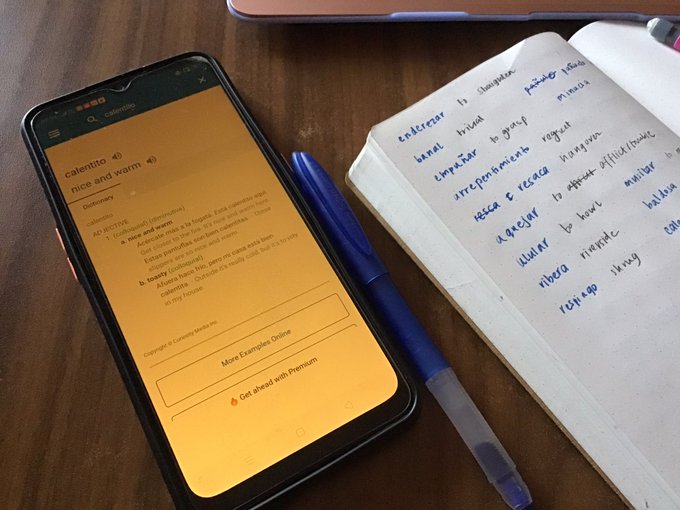 calentito
calentito
nice and warm
Dictionary
calentito
ADJECTIVE
1. (colloquial) (diminutive)
a. nice and warm
Acércate más a la fogata. Está calentito aquí.
Get closer to the fire. It's nice and warm here.
Estas pantuflas son bien calentitas. These
slippers are so nice and warm.
b. toasty (colloquial)
Afuera hace frío, pero mi casa está bien
calentita. Outside it's really cold, but it's toasty
in my house.
Copyright © Curiosity Media Inc.
More Examples Online
Get ahead with Premium
enderezar to straighten
banal trivial
empuñar to grasp
arrepentimiento regret
resaca hangover
aquejar to afflict/trouble
ulular to howl
ribera riverside
respingo shrug
pañuelo
minucia
mutilar to
baldosa